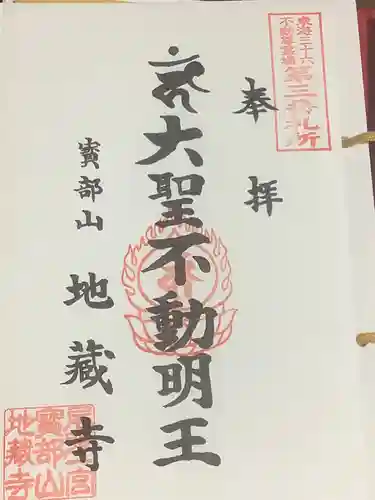 東海三十六
不動尊霊場
第三番札所
奉拝
大聖不動明王
寳部山
地蔵寺
寳部山
地蔵寺